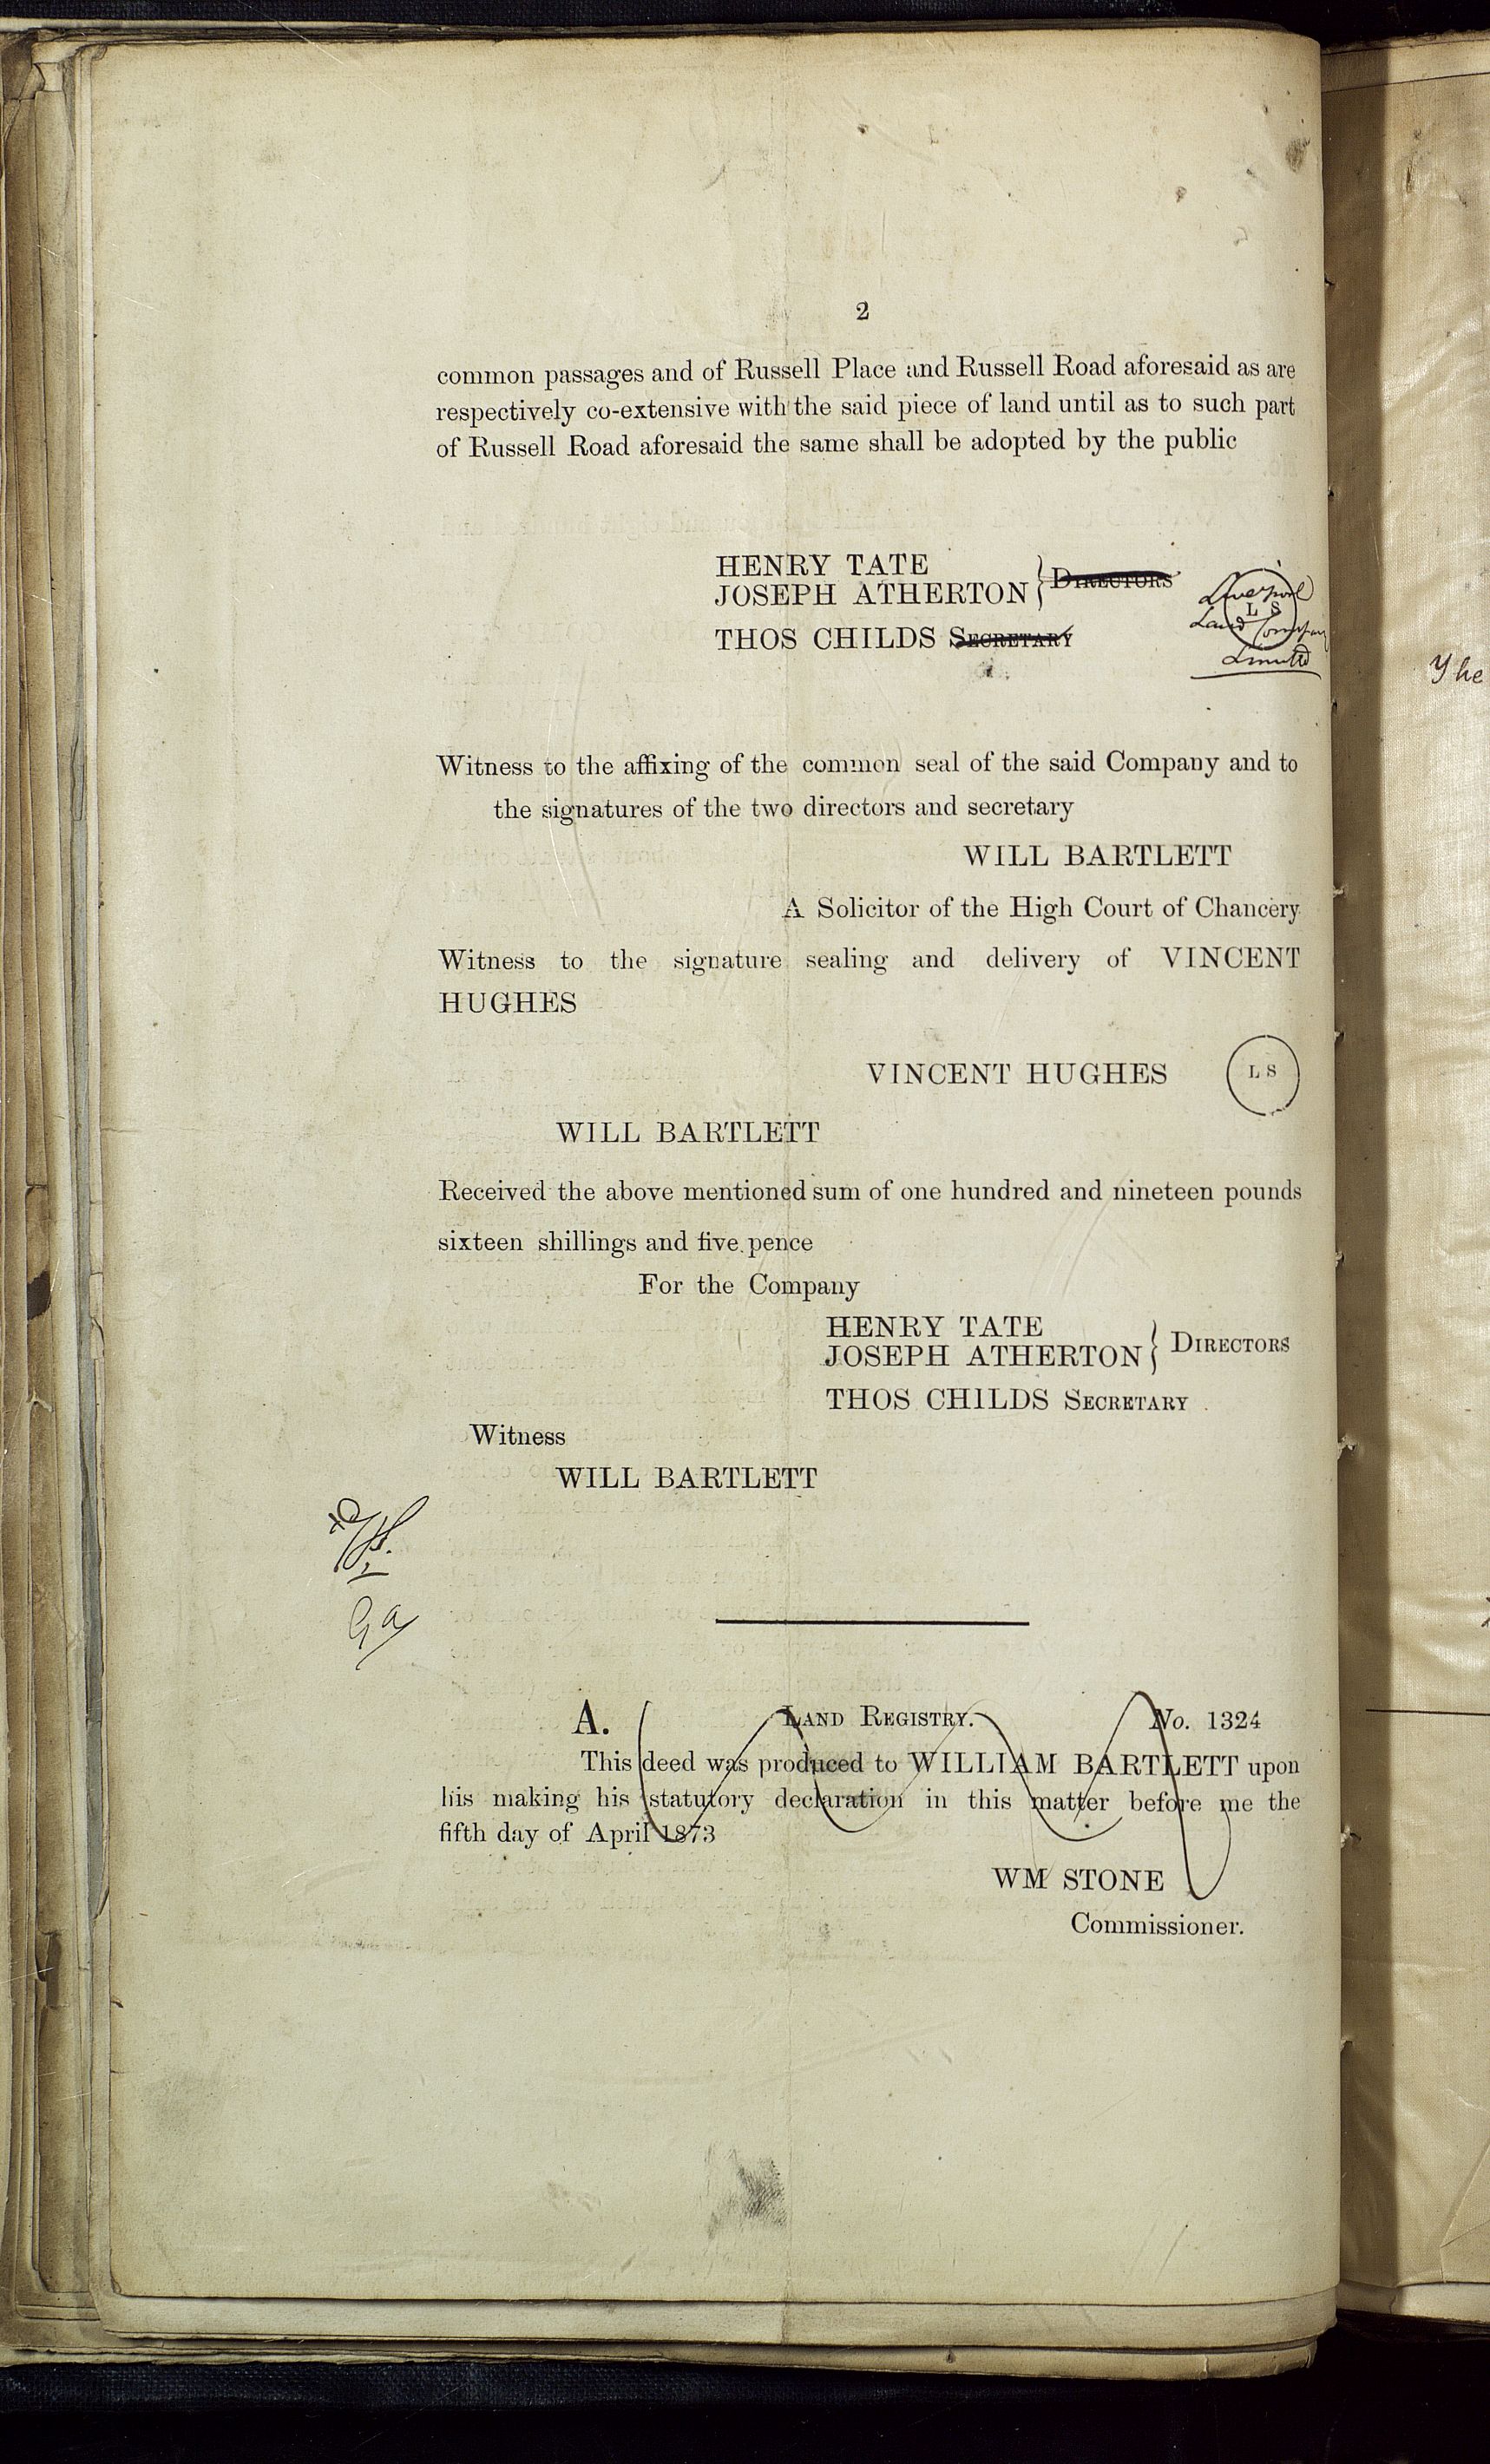 2
common passages and of Russell Place and Russell Road aforesaid as are
respectively co-extensive with the said piece of land until as to such part
of Russell Road aforesaid the same shall be adopted by the public
HENRY TATE
JOSEPH ATHERTON } DIRECTORS
THOS CHILDS SECRETARY
Liverpool
L S
Land Company
Limited
Witness to the affixing of the common seal of the said Company and to
the signatures of the two directors and secretary
WILL BARTLETT
A Solicitor of the High Court of Chancery
Witness to the signature sealing and delivery of VINCENT
HUGHES
VINCENT HUGHES L S
WILL BARTLETT
Received the above mentioned sum of one hundred and nineteen pounds
sixteen shillings and five pence
For the Company
HENRY TATE
JOSEPH ATHERTON } DIRECTORS
THOS CHILDS SECRETARY
Witness
WILL BARTLETT
A. LAND REGISTRY. No. 1324
This deed was produced to WILLIAM BARTLETT upon
his making his statutory declaration in this matter before me the
fifth day of April 1873
WM STONE
Commissioner.
The